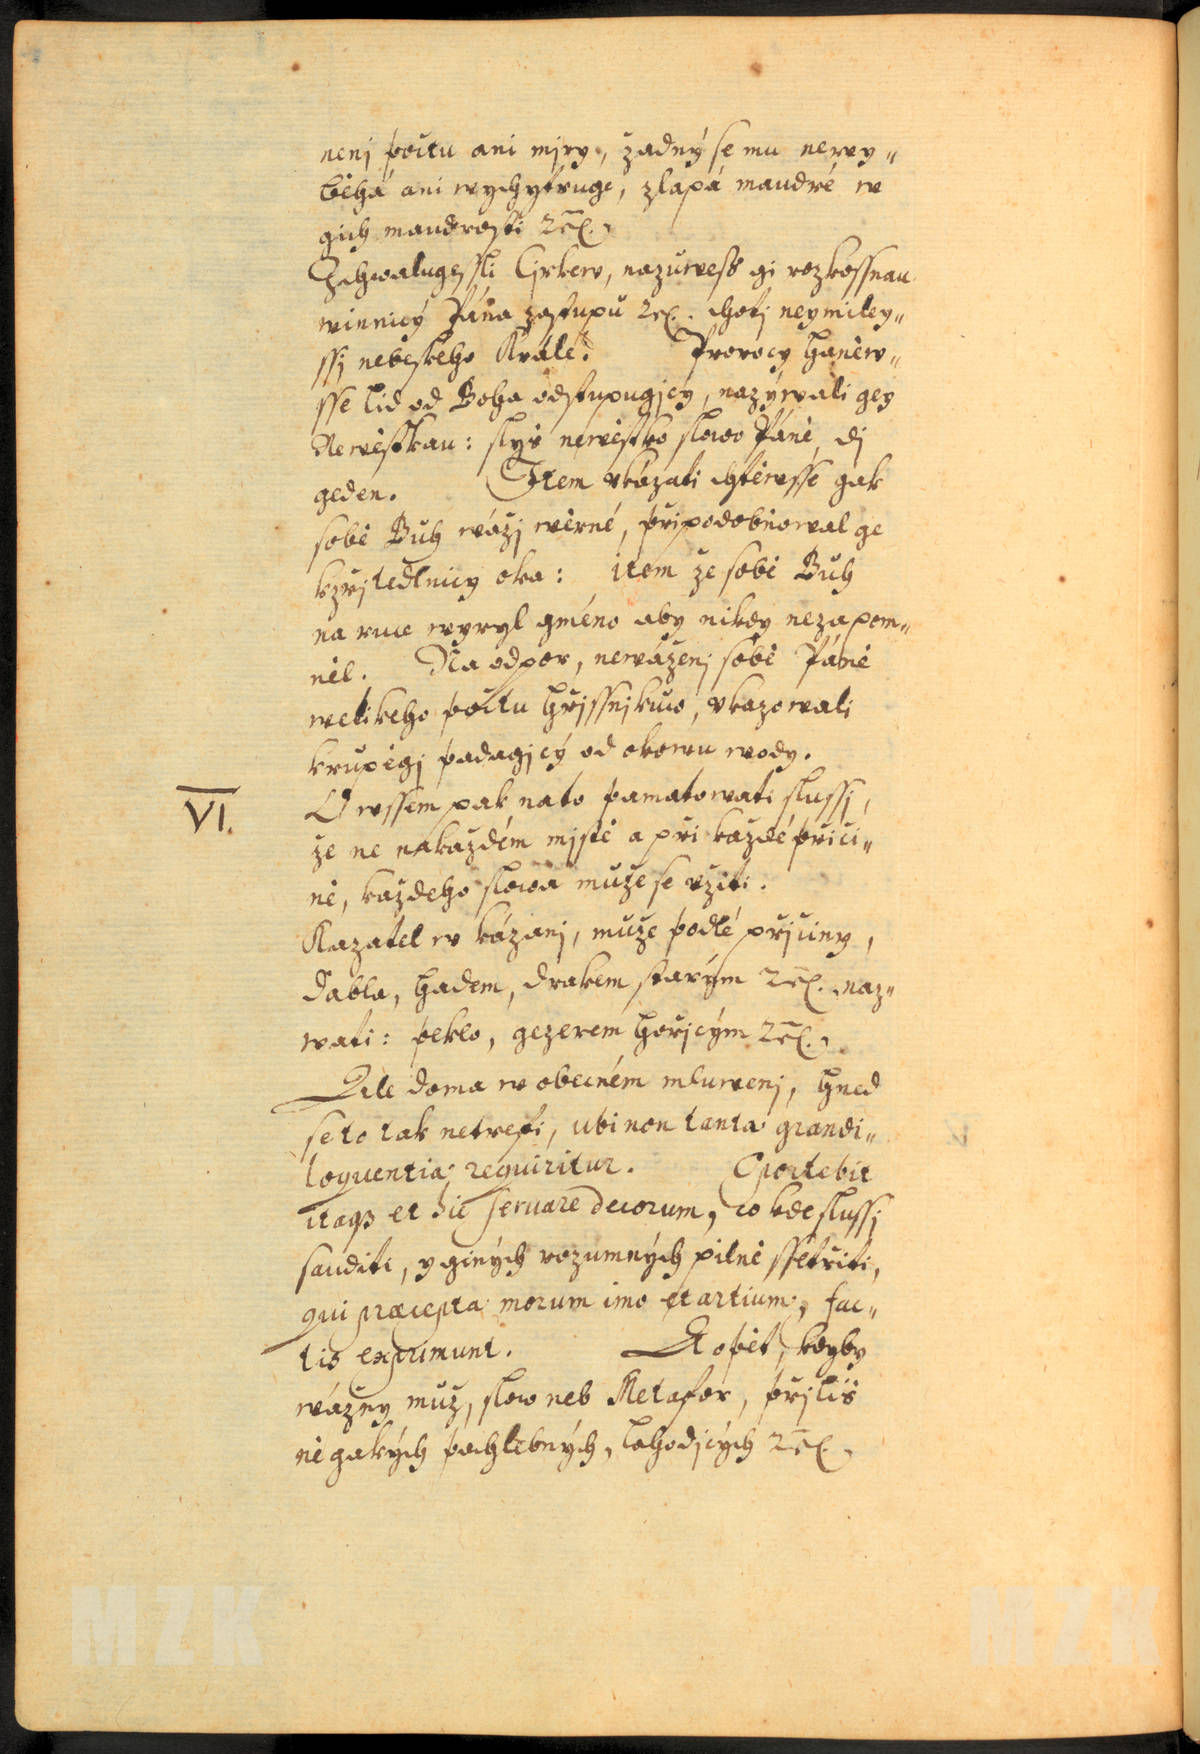 nenj počtu ani mjry, žadný se mu newy„
běhá ani wychytruge, zlapá maudré w
gich maudrosti ꝛc̃.
Zchwalugessli Cýrkew, nazůweš gi rozkossnau
winnicý Pána zástupů ꝛc. chotj neymiley„
ssj nebeského Krále. Prorocy haněw„
sse lid od Boha odstupugjcý, nazýwali gey
Newěstkau: slyš newěstko slowo Páně, dj
geden. Item vkázati chtěwsse gak
sobě Bůh wážj wěrné, připodobňowal ge
kzřjtedlnicy oka: item že sobě Bůh
na ruce wyryl gméno aby nikdy nezapom„
něl. Na odpor, newáženj sobě Páně
welikého počtu hřjssnjkůw, vkazowali
krupěgj padagjcý od okowu wody.
VI. O wssem pak nato pamatowati slussj,
že ne nakaždém mjstě a při každé přiči„
ně, každeho slowa může se vžiti.
Kazatel w kázanj, může podlé přjčiny,
dábla, hadem, drakem starým ꝛc̃. naz„
wati: peklo, gezerem hořjcým ꝛc̃.
Ale doma w obecném mluwenj, hned
se to tak netrefi, ubi non tanta grandi„
loquentia requiritur. Oportebit
itaqꝫ et hic servare decorum, co kde slussj
sauditi, y giných rozumných pilně ssetřiti,
qui præcepta morum imo et artium, fac„
tis exprimunt. A opět, kdyby
wážny muž, slow neb Metafor, přjliš
něgakých pochlebných, lahodjcých ꝛc̃.
MZK MZK